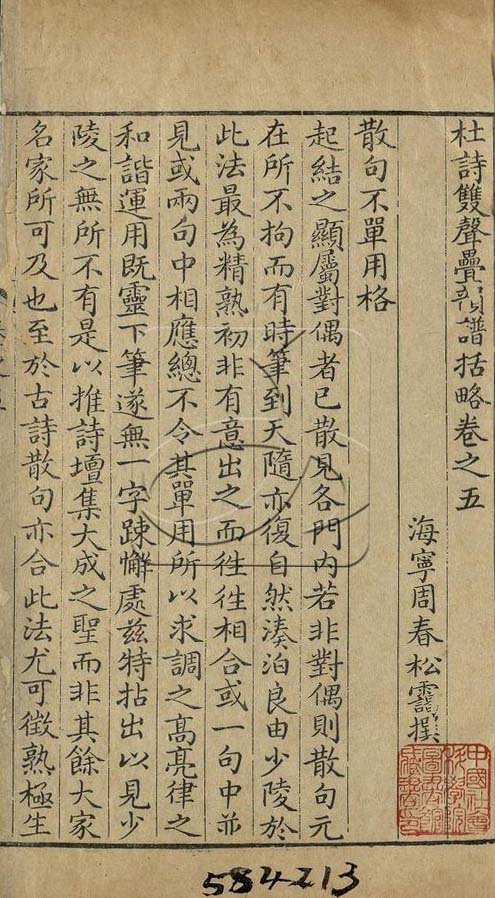 杜詩雙聲疊韻譜括略卷之五
海寧周春松靄撰
散句不單用格
起結之顯屬對偶者已散見各門內若非對偶則散句元
在所不拘而有時筆到天隨亦復自然湊泊良由少陵於
此法最為精熟初非有意出之而徃徃相合或一句中並
見或兩句中相應總不令其單用所以求調之高亮律之
和諧運用既靈下筆遂無一字踈懈處兹特拈出以見少
陵之無所不有是以推詩壇集大成之聖而非其餘大家
名家所可及也至於古詩散句亦合此法尤可徴熟極生
584213